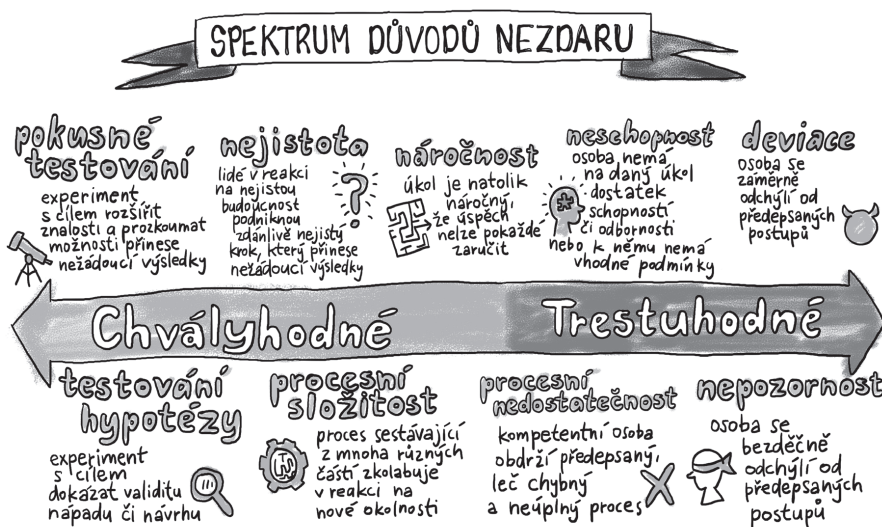 SPEKTRUM DŮVODŮ NEZDARU
pokusné
testování
experiment
s cílem rozšířit
znalosti a prozkoumat
možnosti přinese
nežádoucí výsledky
nejistota
lidé v reakci
na nejistou
budoucnost
podniknou
zdánlivě nejistý
krok, který přinese
nežádoucí výsledky
náročnost
úkol je natolik
náročný,
že úspěch
nelze pokaždé
zaručit
neschopnost
osoba nemá
na daný úkol
dostatek
schopností
či odbornosti
nebo k němu nemá
vhodné podmínky
deviace
osoba se
záměrně
odchýlí od
předepsaných
postupů
Chvályhodné
Trestuhodné
testování
hypotézy
experiment
s cílem
dokázat validitu
nápadu či návrhu
procesní
složitost
proces sestávající
z mnoha různých
částí zkolabuje
v reakci na
nové okolnosti
procesní
nedostatečnost
kompetentní osoba
obdrží předepsaný,
leč chybný
a neúplný proces
nepozornost
osoba se
bezděčně
odchýlí od
předepsaných
postupů